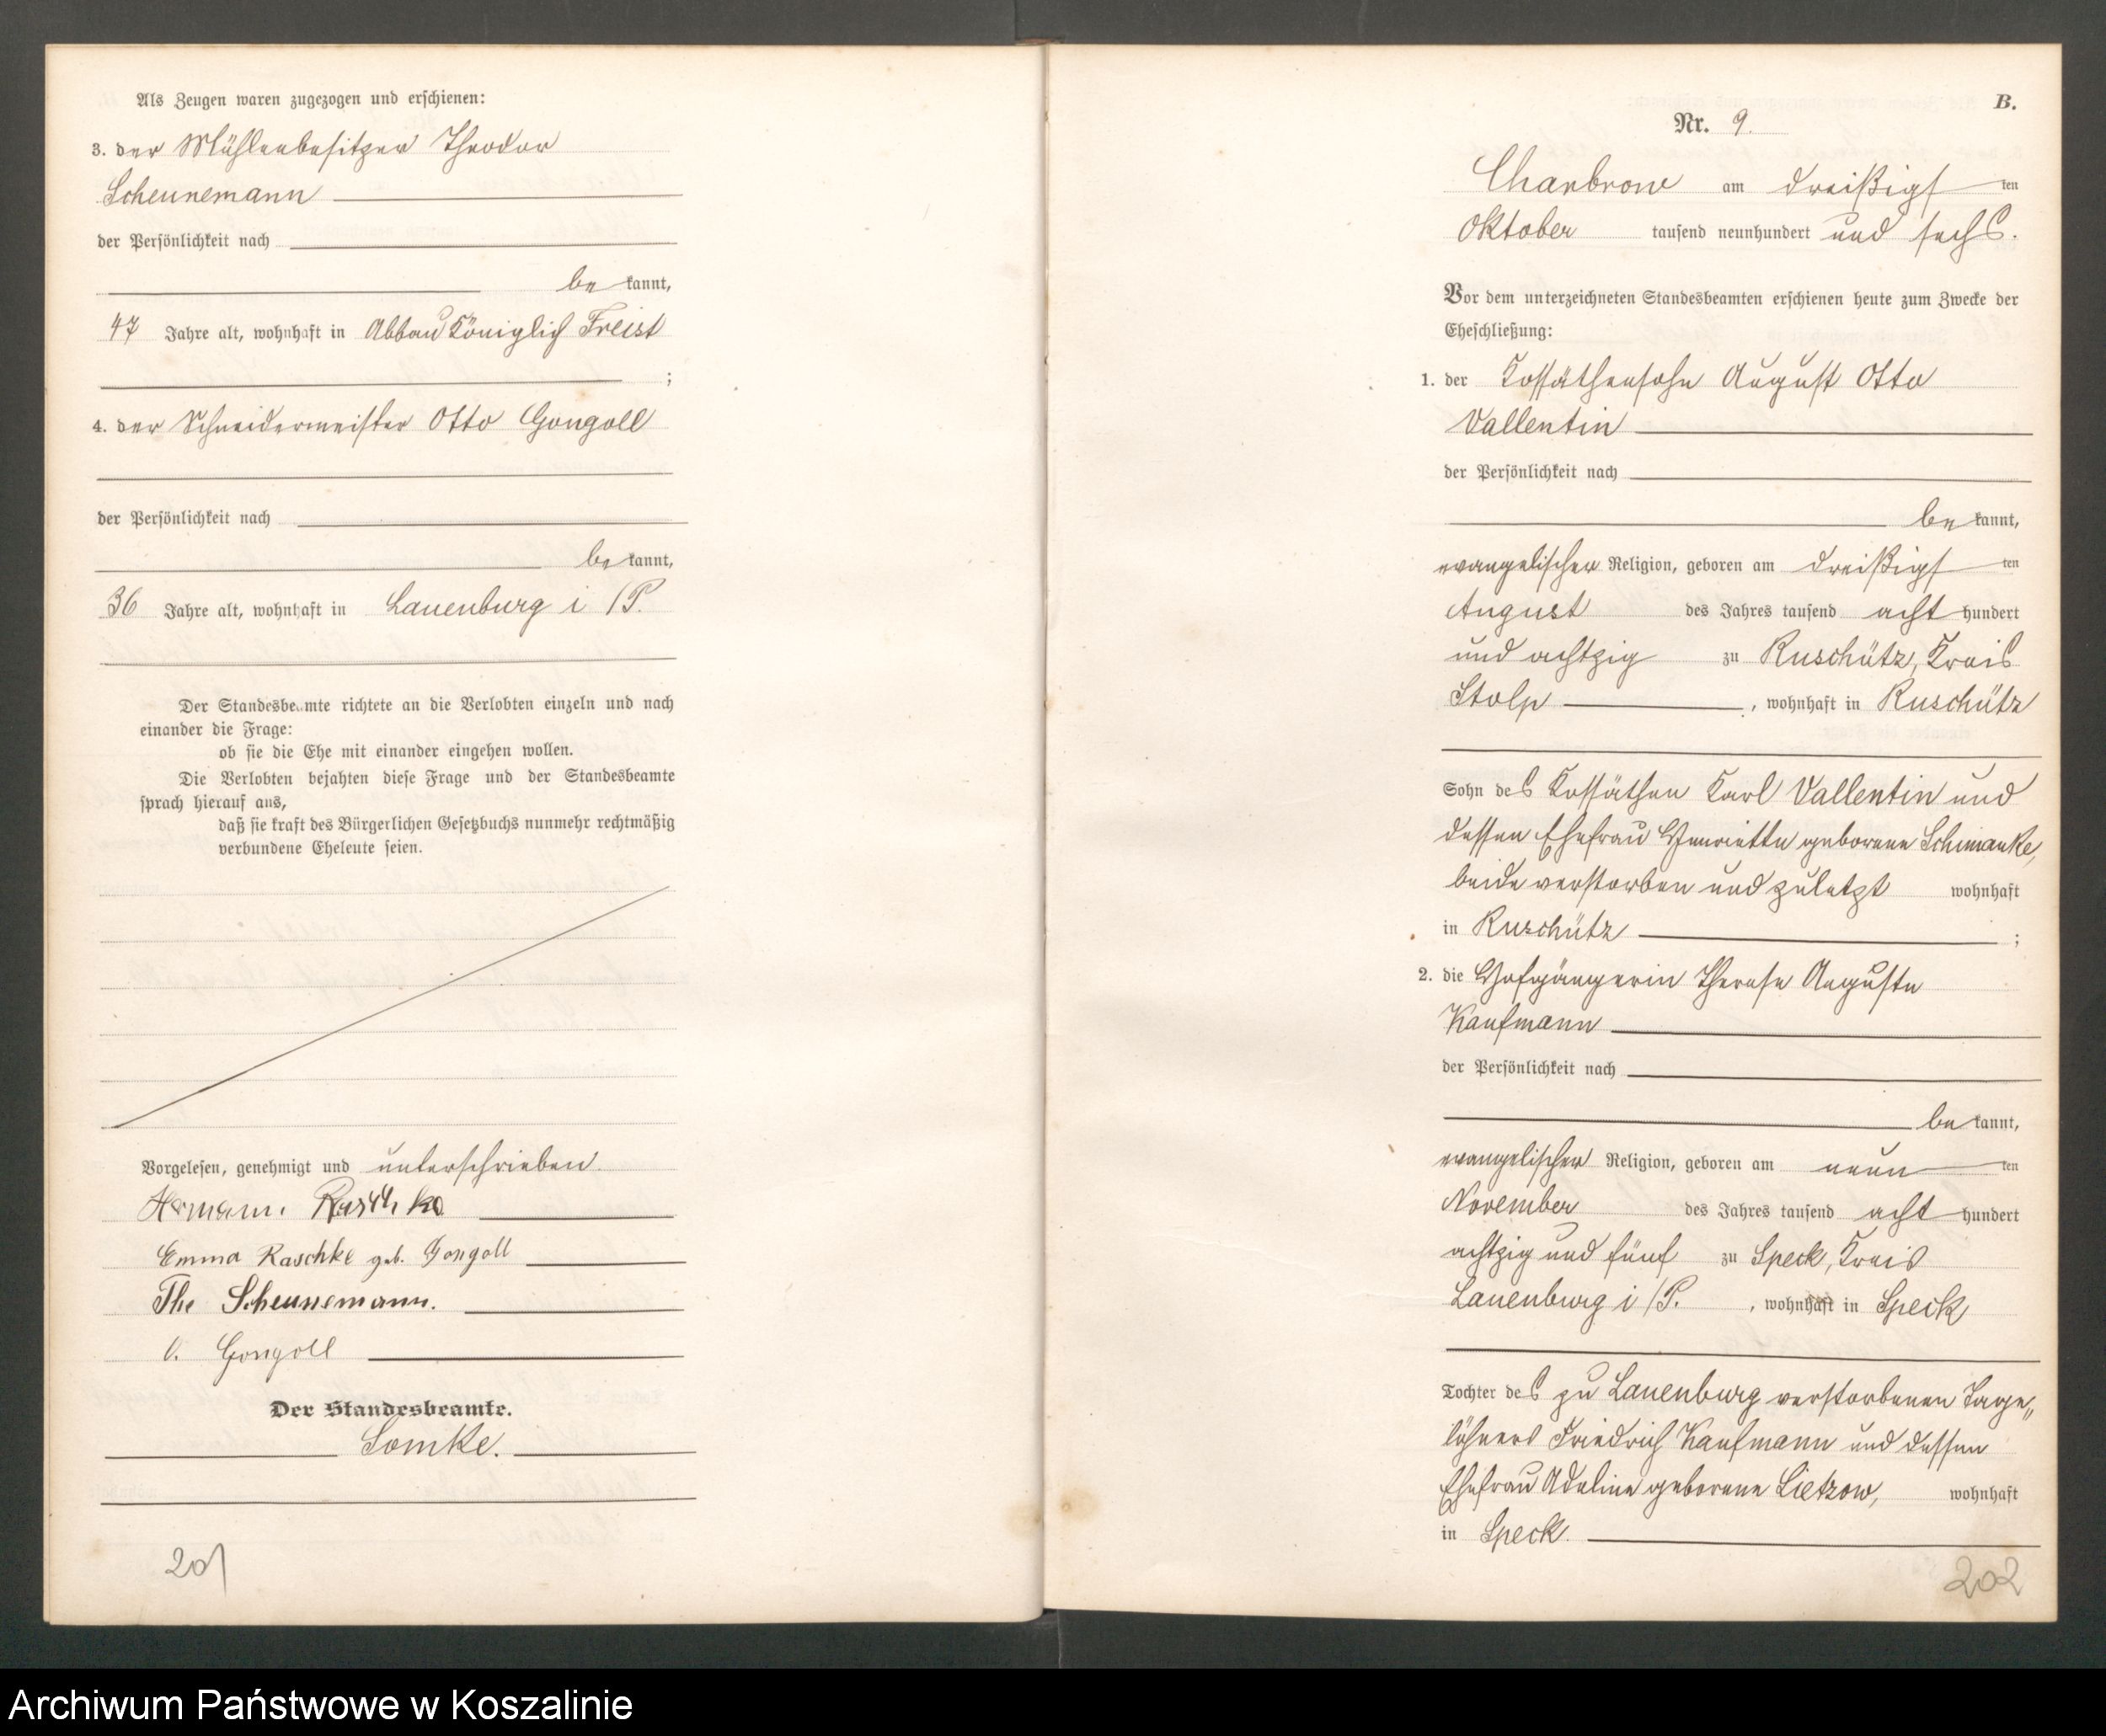 Als Zeugen waren zugezogen und erschienen:
3. der Mühlenbesitzer Theodor
Scheunemann
der Persönlichkeit nach
be kannt,
47 Jahre alt, wohnhaft in Abbau Königlich Freist
;
4. der Schneidermeister Otto Gongoll
der Persönlichkeit nach
be kannt,
36 Jahre alt, wohnhaft in Lauenburg i/P.
Der Standesbeamte richtete an die Verlobten einzeln und nach
einander die Frage:
ob sie die Ehe mit einander eingehen wollen.
Die Verlobten bejahten diese Frage und der Standesbeamte
sprach hierauf aus,
daß sie kraft des Bürgerlichen Gesetzbuchs nunmehr rechtmäßig
verbundene Eheleute seien.
Vorgelesen, genehmigt und unterschrieben.
Hermann Raschke
Emma Raschke geb. Gongoll
The Scheunemann.
O. Gongoll
Der Standesbeamte.
Lomke.
201
B.
Nr. 9.
Charbrow am dreißigsten
Oktober tausend neunhundert und sechs.
Vor dem unterzeichneten Standesbeamten erschienen heute zum Zwecke der
Eheschließung:
1. der Kossäthensohn August Otto
Vallentin
der Persönlichkeit nach
be kannt,
evangelischer Religion, geboren am dreißigsten
August des Jahres tausend acht hundert
und achtzig zu Ruschütz, Kreis
Stolp, wohnhaft in Ruschütz
Sohn des Kossäthen Karl Vallentin und
dessen Ehefrau Henriette geborene Schimanke,
beide verstorben und zuletzt wohnhaft
in Ruschütz ;
2. die Hofgängerin Therese Auguste
Kaufmann
der Persönlichkeit nach
be kannt,
evangelischer Religion, geboren am neunten
November des Jahres tausend acht hundert
achtzig und fünf zu Speck, Kreis
Lauenburg i/P., wohnhaft in Speck
Tochter des zu Lauenburg verstorbenen Tage„
löhners Friedrich Kaufmann und dessen
Ehefrau Adeline geborene Lietzow, wohnhaft
in Speck.
202
Archiwum Państwowe w Koszalinie